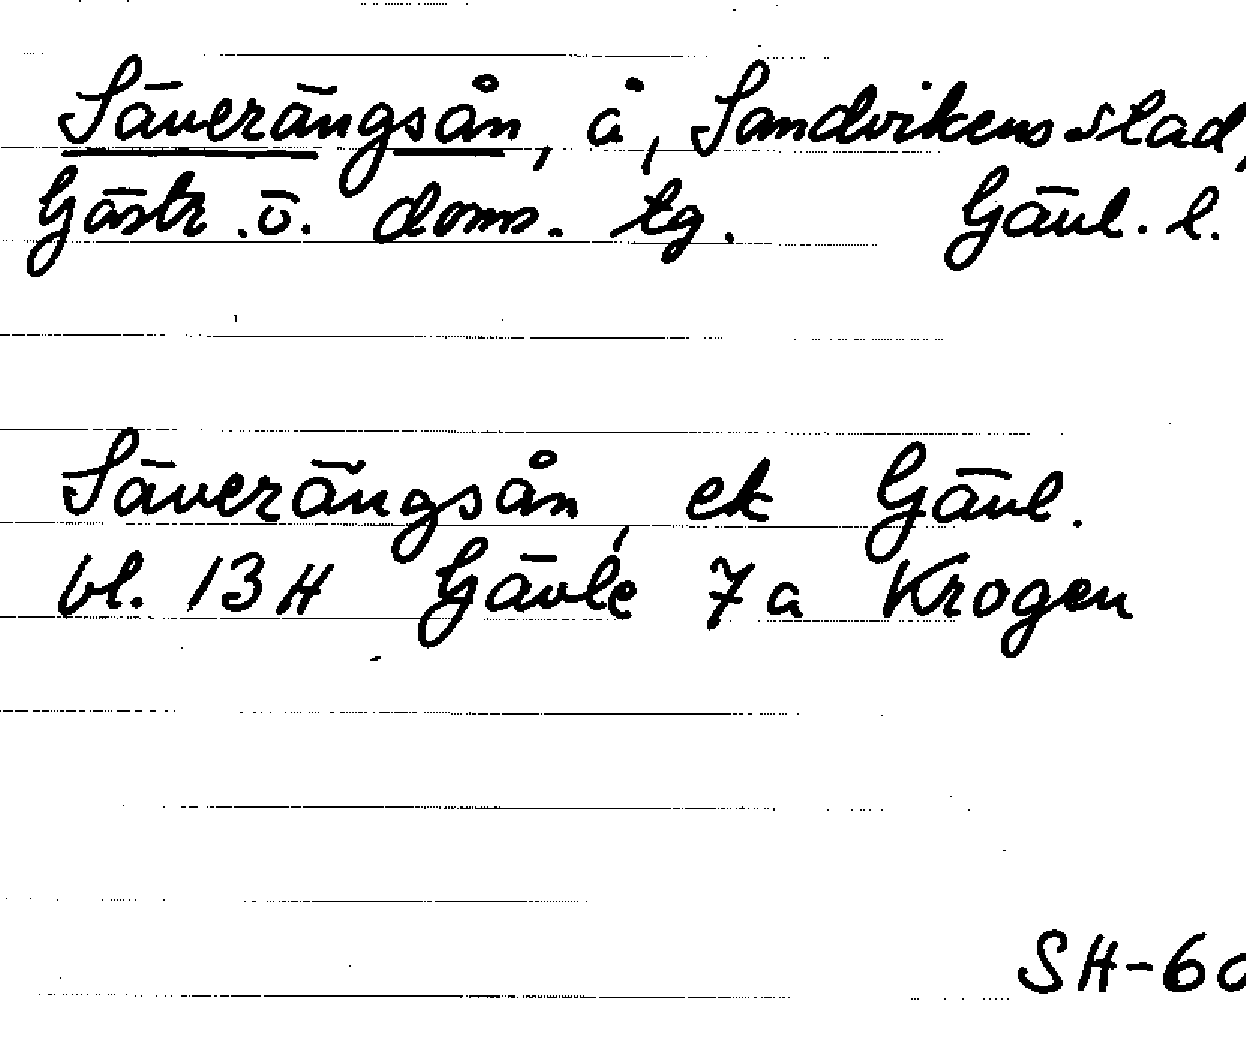 Säverängsån, å, Sandvikens stad,
Gästr. ö. doms. tg. Gävl. l.
Säverängsån, ek Gävl.
bl. 13 H Gävle 7 a Krogen
SH-60